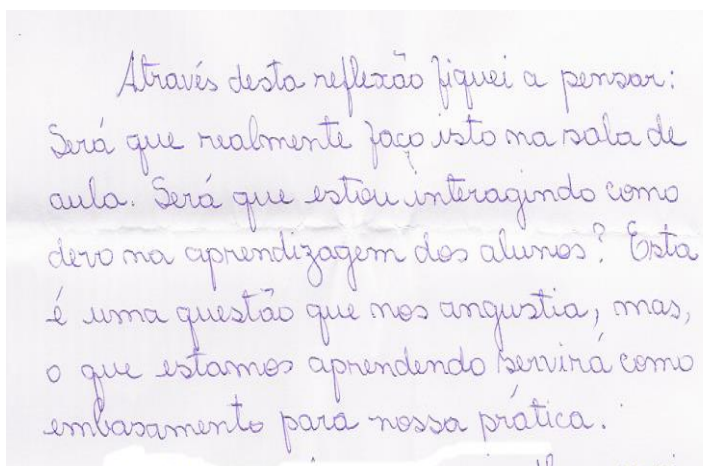 Através desta reflexão fiquei a pensar:
Será que realmente faço isto na sala de
aula. Será que estou interagindo como
devo na aprendizagem dos alunos? Esta
é uma questão que nos angustia, mas,
o que estamos aprendendo servirá como
embasamento para nossa prática.